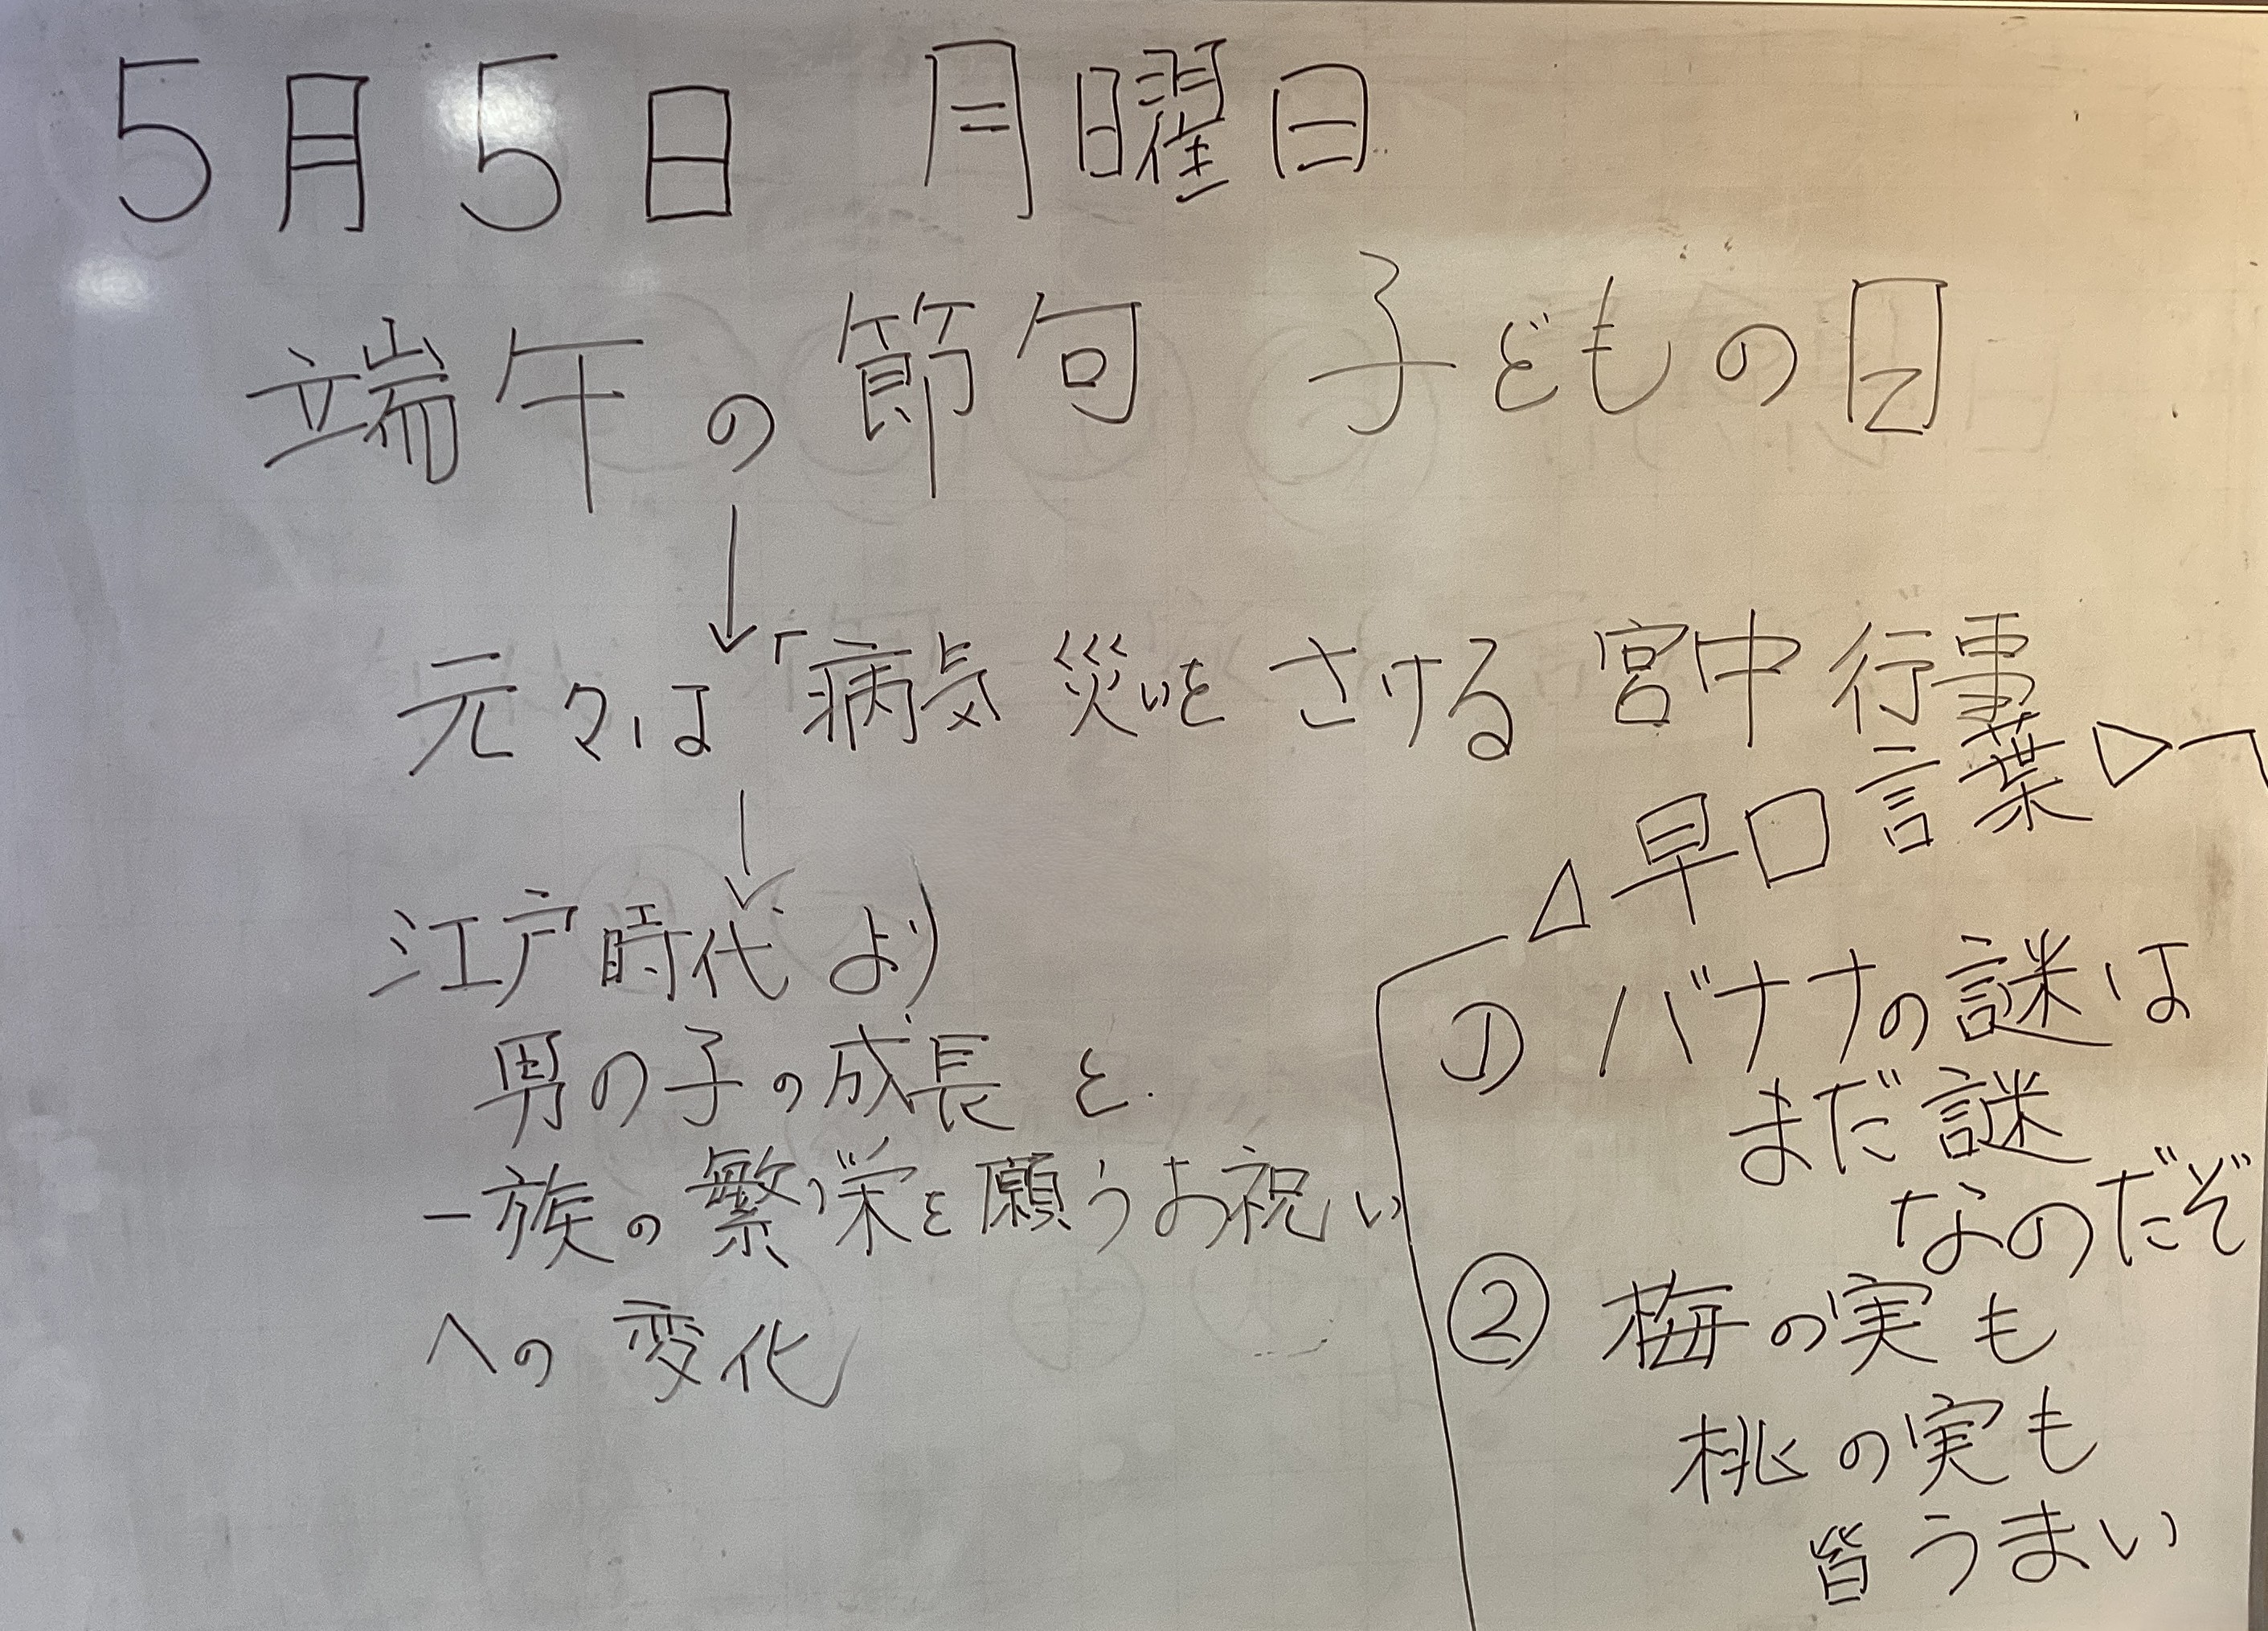 5月5日 月曜日
端午の節句 子どもの日
↓
元々は「病気 災いをさける 宮中行事
↓
江戸時代より
男の子の成長と
一族の繁栄を願うお祝い
への変化
△早口言葉▷
① バナナの謎は
まだ謎
なのだぞ
② 梅の実も
桃の実も
皆うまい